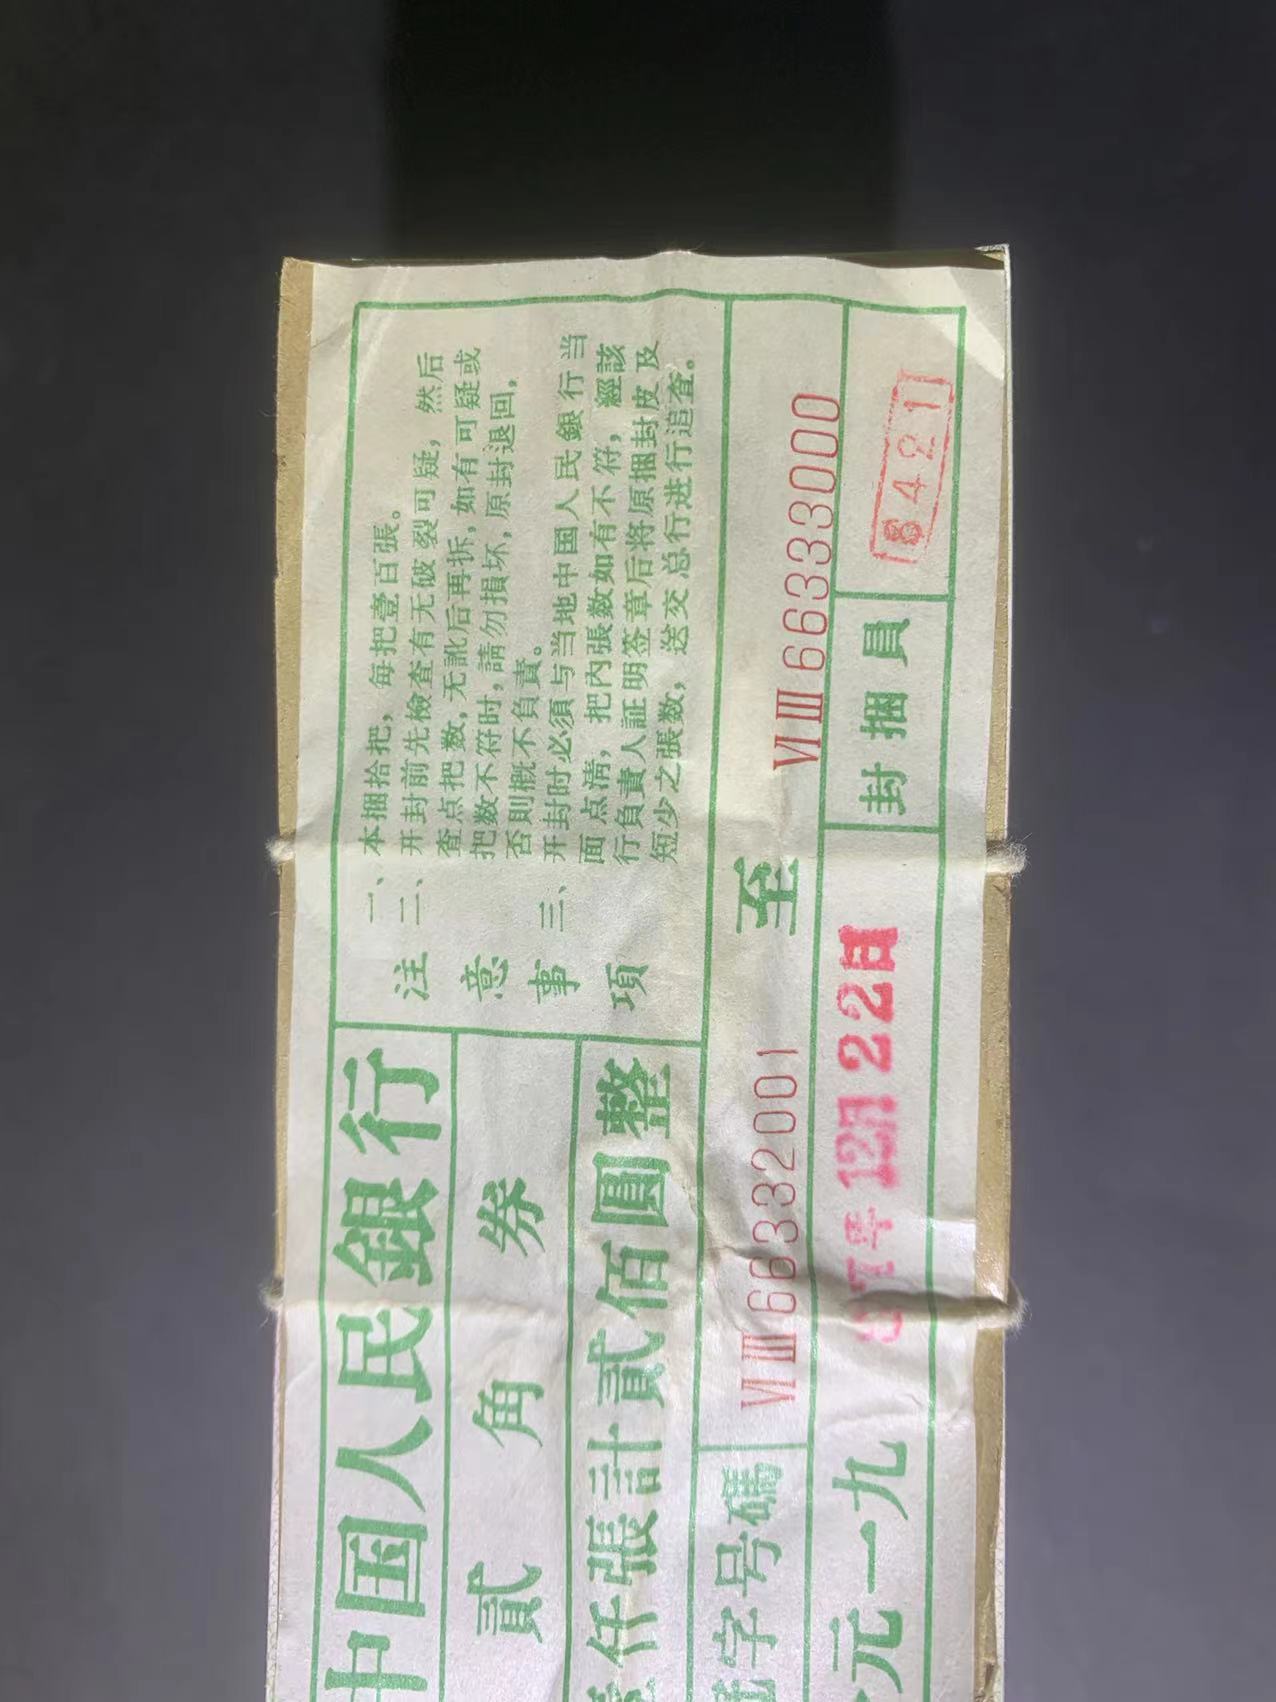 中国人民銀行
貳角券
仟張計貳佰圓整
注意事項
一、本捆拾把，每把壹百張。
二、开封前先檢查有无破裂可疑，然后
查点把数，无訛后再拆，如有可疑或
把数不符时，請勿損坏，原封退回，
否則概不負責。
三、开封时必須与当地中国人民銀行当
面点清，把內張数如有不符，經該
行負責人証明签章后将原捆封皮及
短少之張数，送交总行进行追查。
字号碼 VI III 66332001 至 VI III 66333000
元一九 7年 12月 22日 封捆員 8421